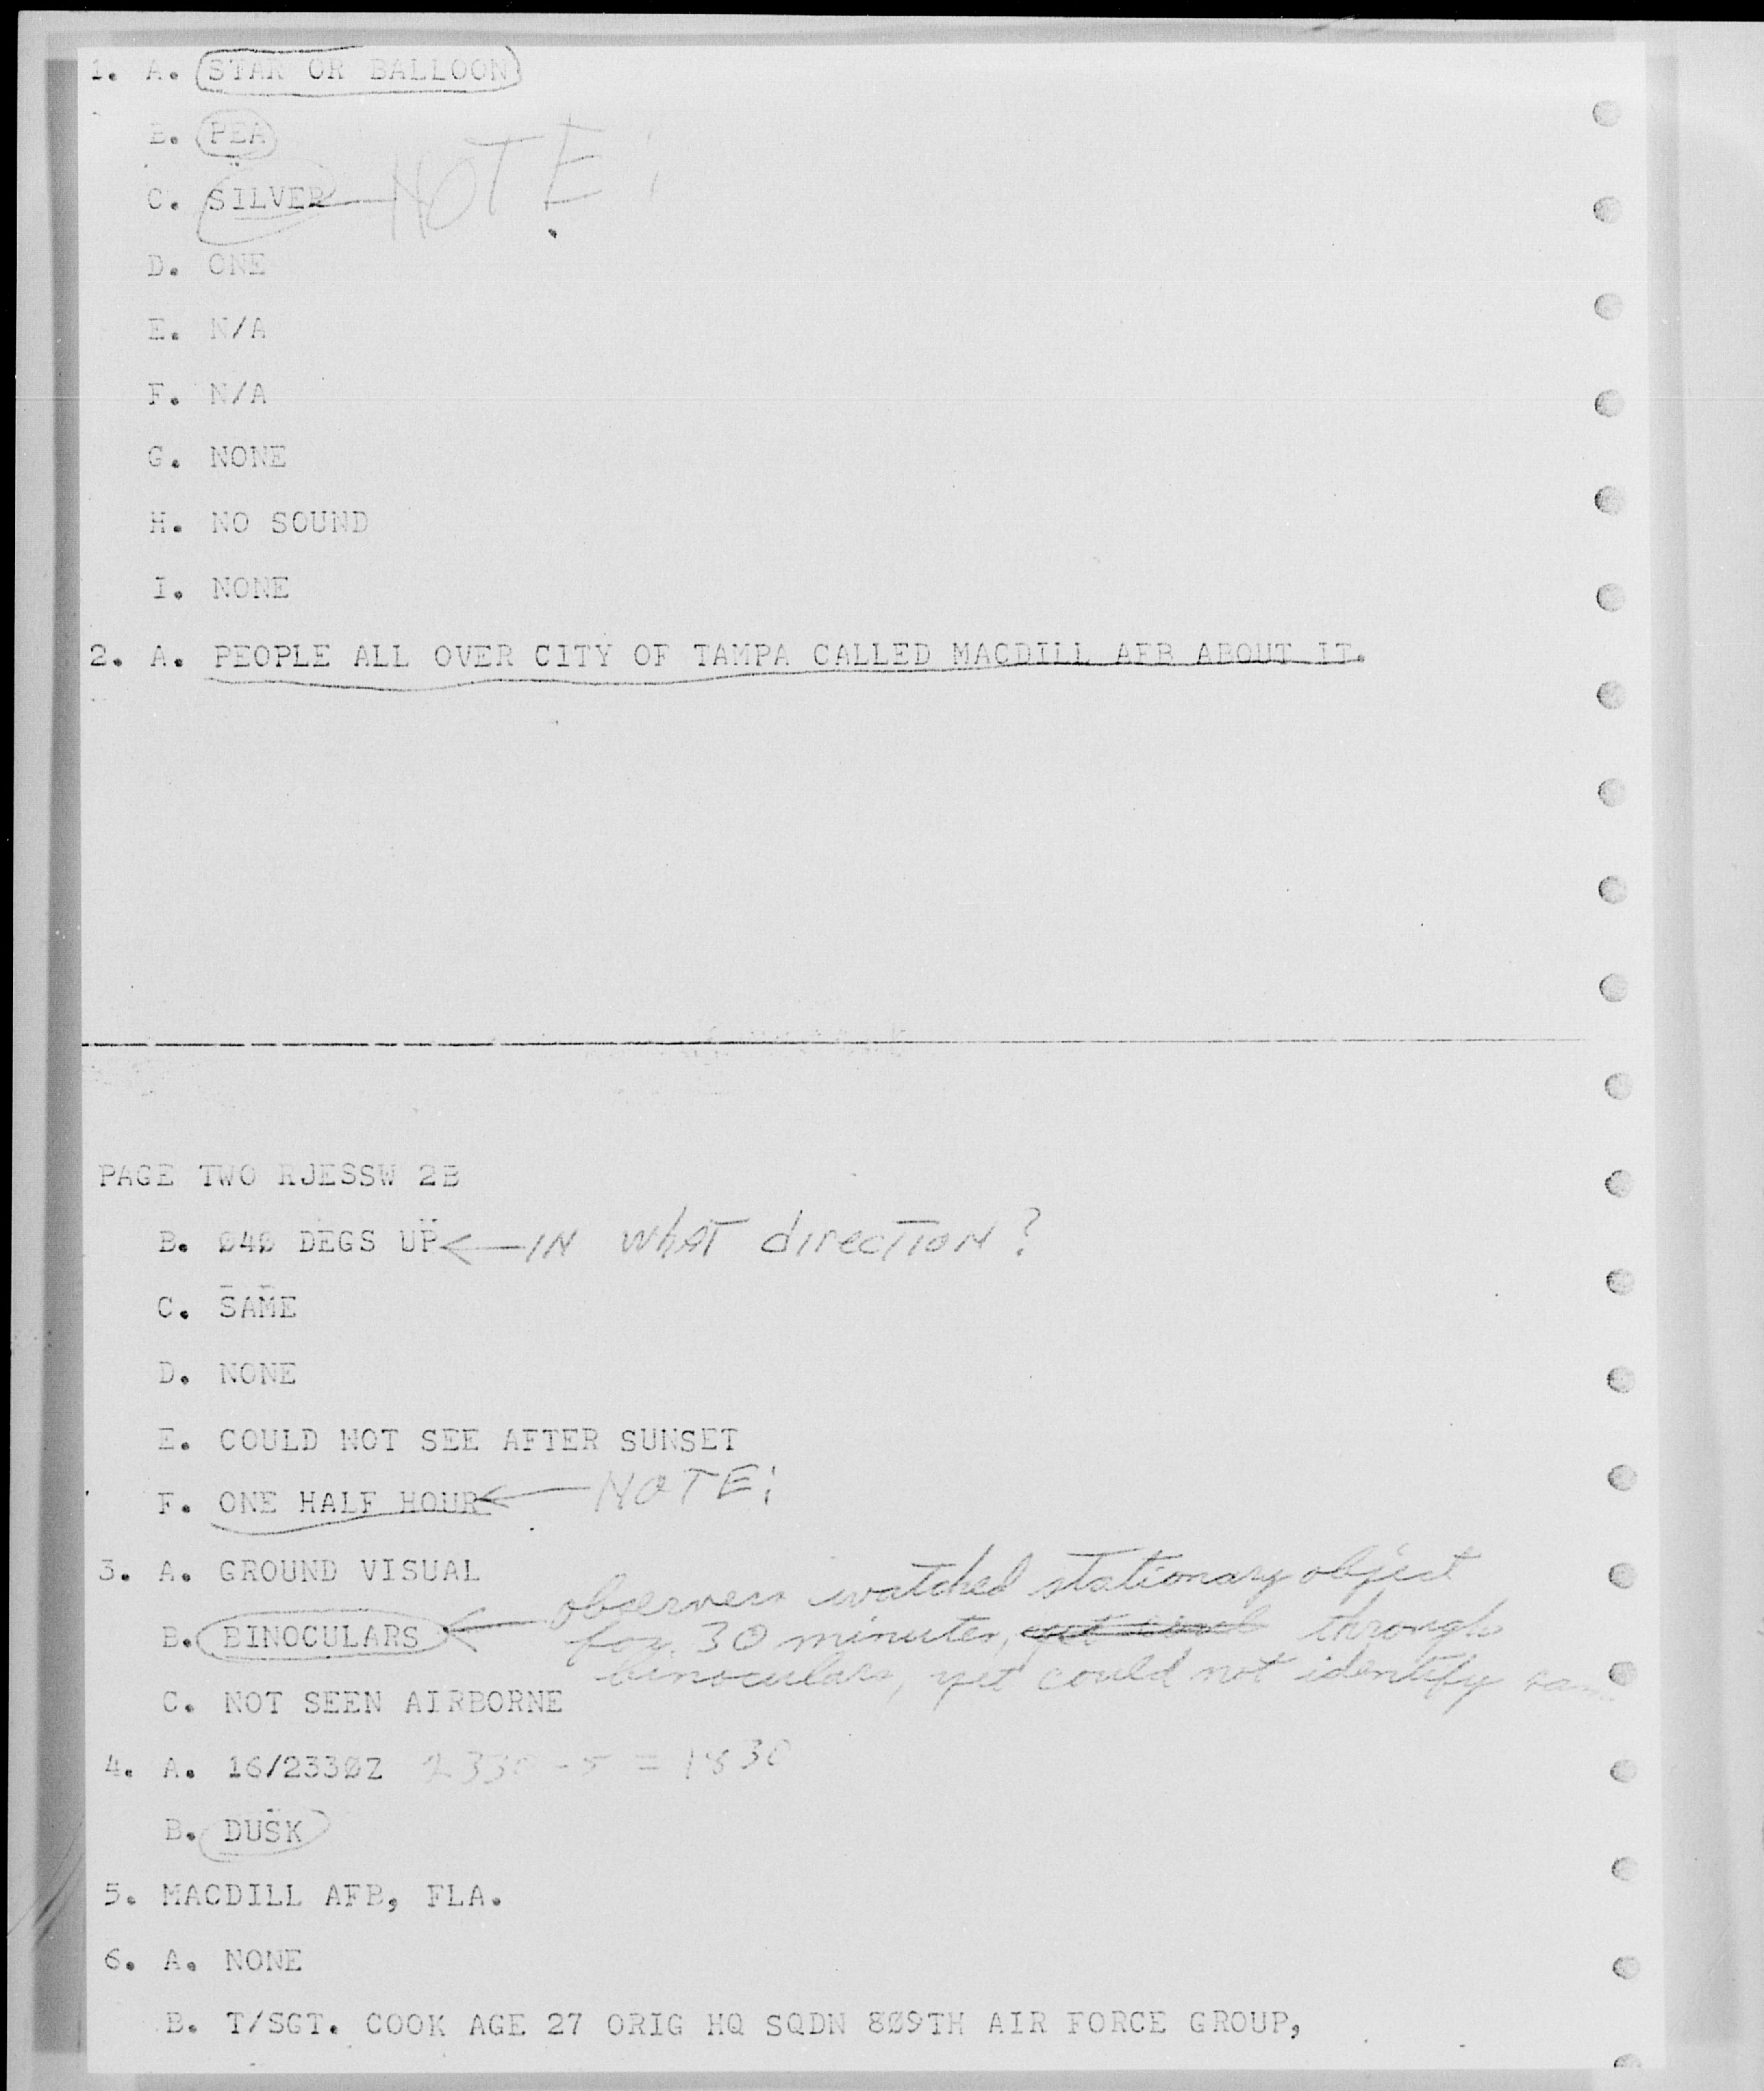 1. A. STAR OR BALLOON
B. PEA
C. SILVER NOTE!
D. ONE
E. N/A
F. N/A
G. NONE
H. NO SOUND
I. NONE
2. A. PEOPLE ALL OVER CITY OF TAMPA CALLED MACDILL AFB ABOUT IT.
PAGE TWO RJESSW 2B
B. Ø4Ø DEGS UP ← IN what direction?
C. SAME
D. NONE
E. COULD NOT SEE AFTER SUNSET
F. ONE HALF HOUR ← NOTE!
3. A. GROUND VISUAL
observers watched stationary object
B. BINOCULARS ← for 30 minutes, through
binoculars, yet could not identify
C. NOT SEEN AIRBORNE
4. A. 16/233ØZ 2330 - 5 = 1830
B. DUSK
5. MACDILL AFB, FLA.
6. A. NONE
B. T/SGT. COOK AGE 27 ORIG HQ SQDN 8Ø9TH AIR FORCE GROUP,